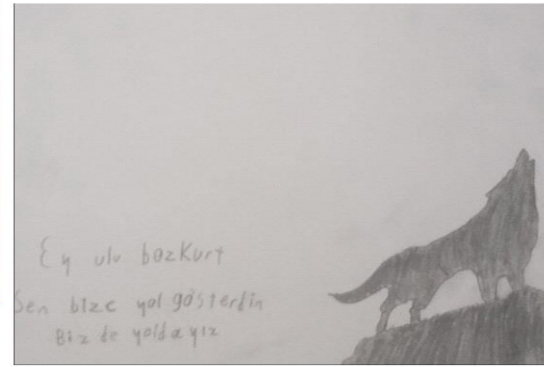 Ey ulu bozkurt
Sen bize yol gösterdin
Biz de yoldayız